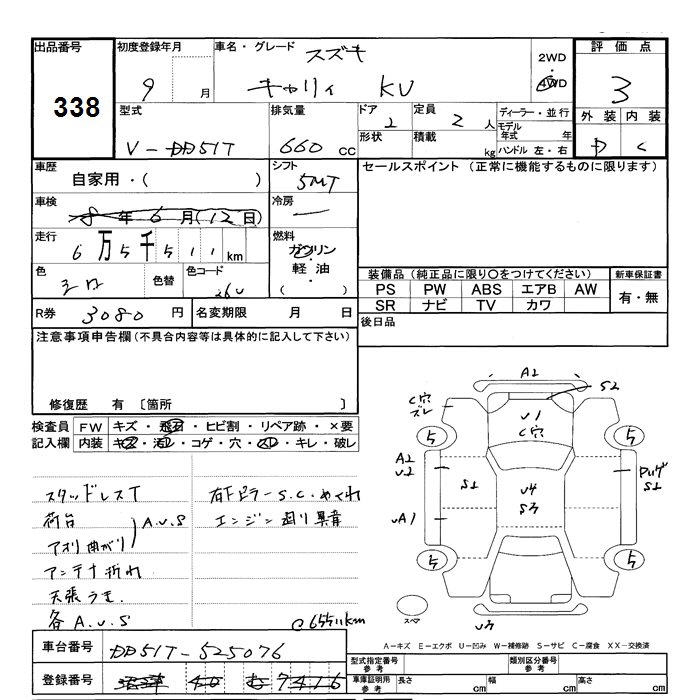 出品番号
338
初度登録年月
9 月
車名・グレード
スズキ
キャリィ KU
2WD
4WD
評価点
3
外装 内装
D C
型式
V-DD51T
排気量
660 cc
ドア
2
形状
定員
2 人
積載
kg
ディーラー・並行
モデル年式 年
ハンドル 左・右
車歴
自家用・( )
シフト
5MT
車検
8年6月(12日)
冷房
走行
6万5千511km
燃料
ガソリン
軽油
( )
色
シロ
色替
色コード
26U
R券 3080 円
名変期限 月 日
セールスポイント (正常に機能するものに限ります)
装備品(純正品に限り〇をつけてください)
PS PW ABS エアB AW
SR ナビ TV カワ
新車保証書
有・無
後日品
注意事項申告欄(不具合内容等は具体的に記入して下さい)
修復歴 有 〔箇所 〕
検査員記入欄
FW キズ・飛石・ヒビ割・リペア跡・×要
内装 キズ・汚れ・コゲ・穴・・キレ・破レ
スタッドレスT
荷台
アオリ曲がり
A.U.S
アンテナ折れ
天張うき
各A.U.S
右FピラーS.C.めくれ
エンジン廻り異音
@65511km
A2
S2
C穴
ズレ
U1
C穴
5
5
A2
U2
S1
U4
S3
S1
UA1
5
5
スペア
U3
A-キズ E-エクボ U-凹み W-補修跡 S-サビ C-腐食 XX-交換済
車台番号
DD51T-525076
登録番号
沼津 40 む 9416
型式指定番号
参考
類別区分番号
参考
車庫証明用
参考
長さ cm
幅 cm
高さ cm